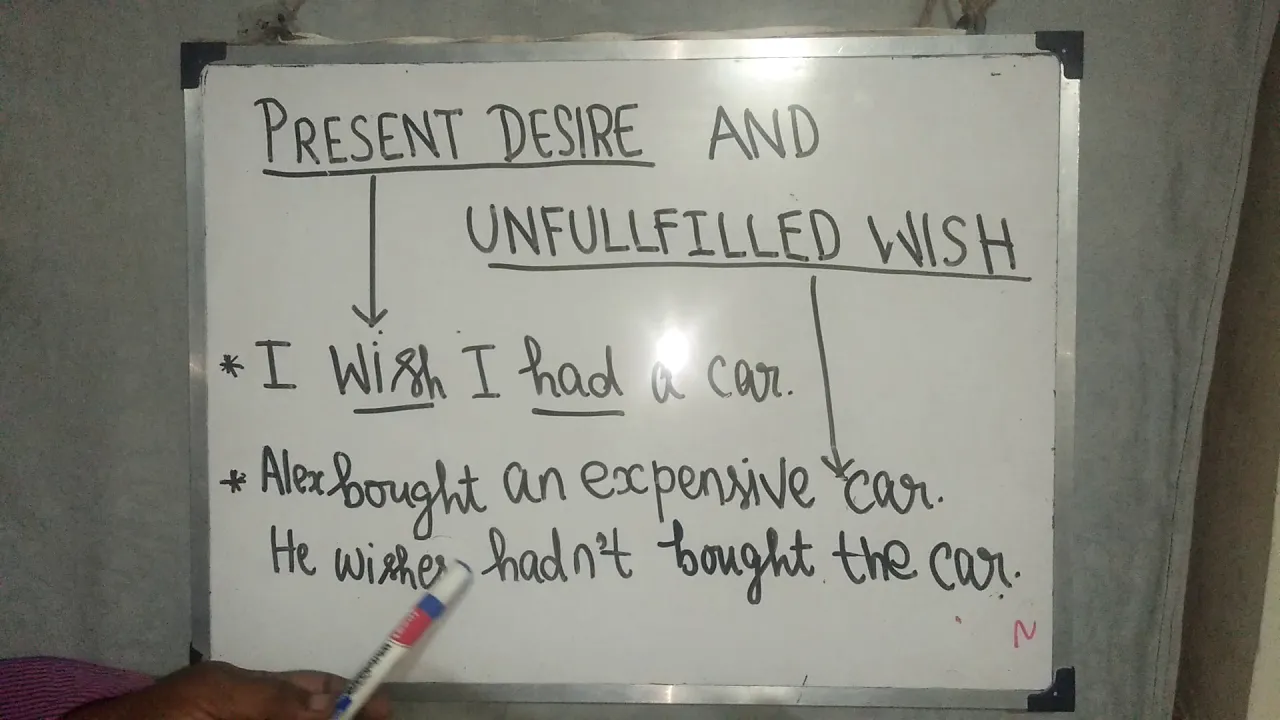 PRESENT DESIRE AND
UNFULLFILLED WISH
* I Wish I had a car.
* Alex bought an expensive car.
He wishes hadn't bought the car.
N